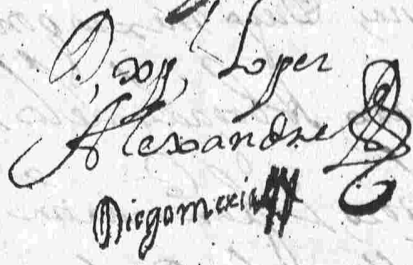 D. xpl, Lopez
Alexandre
Diego mexia